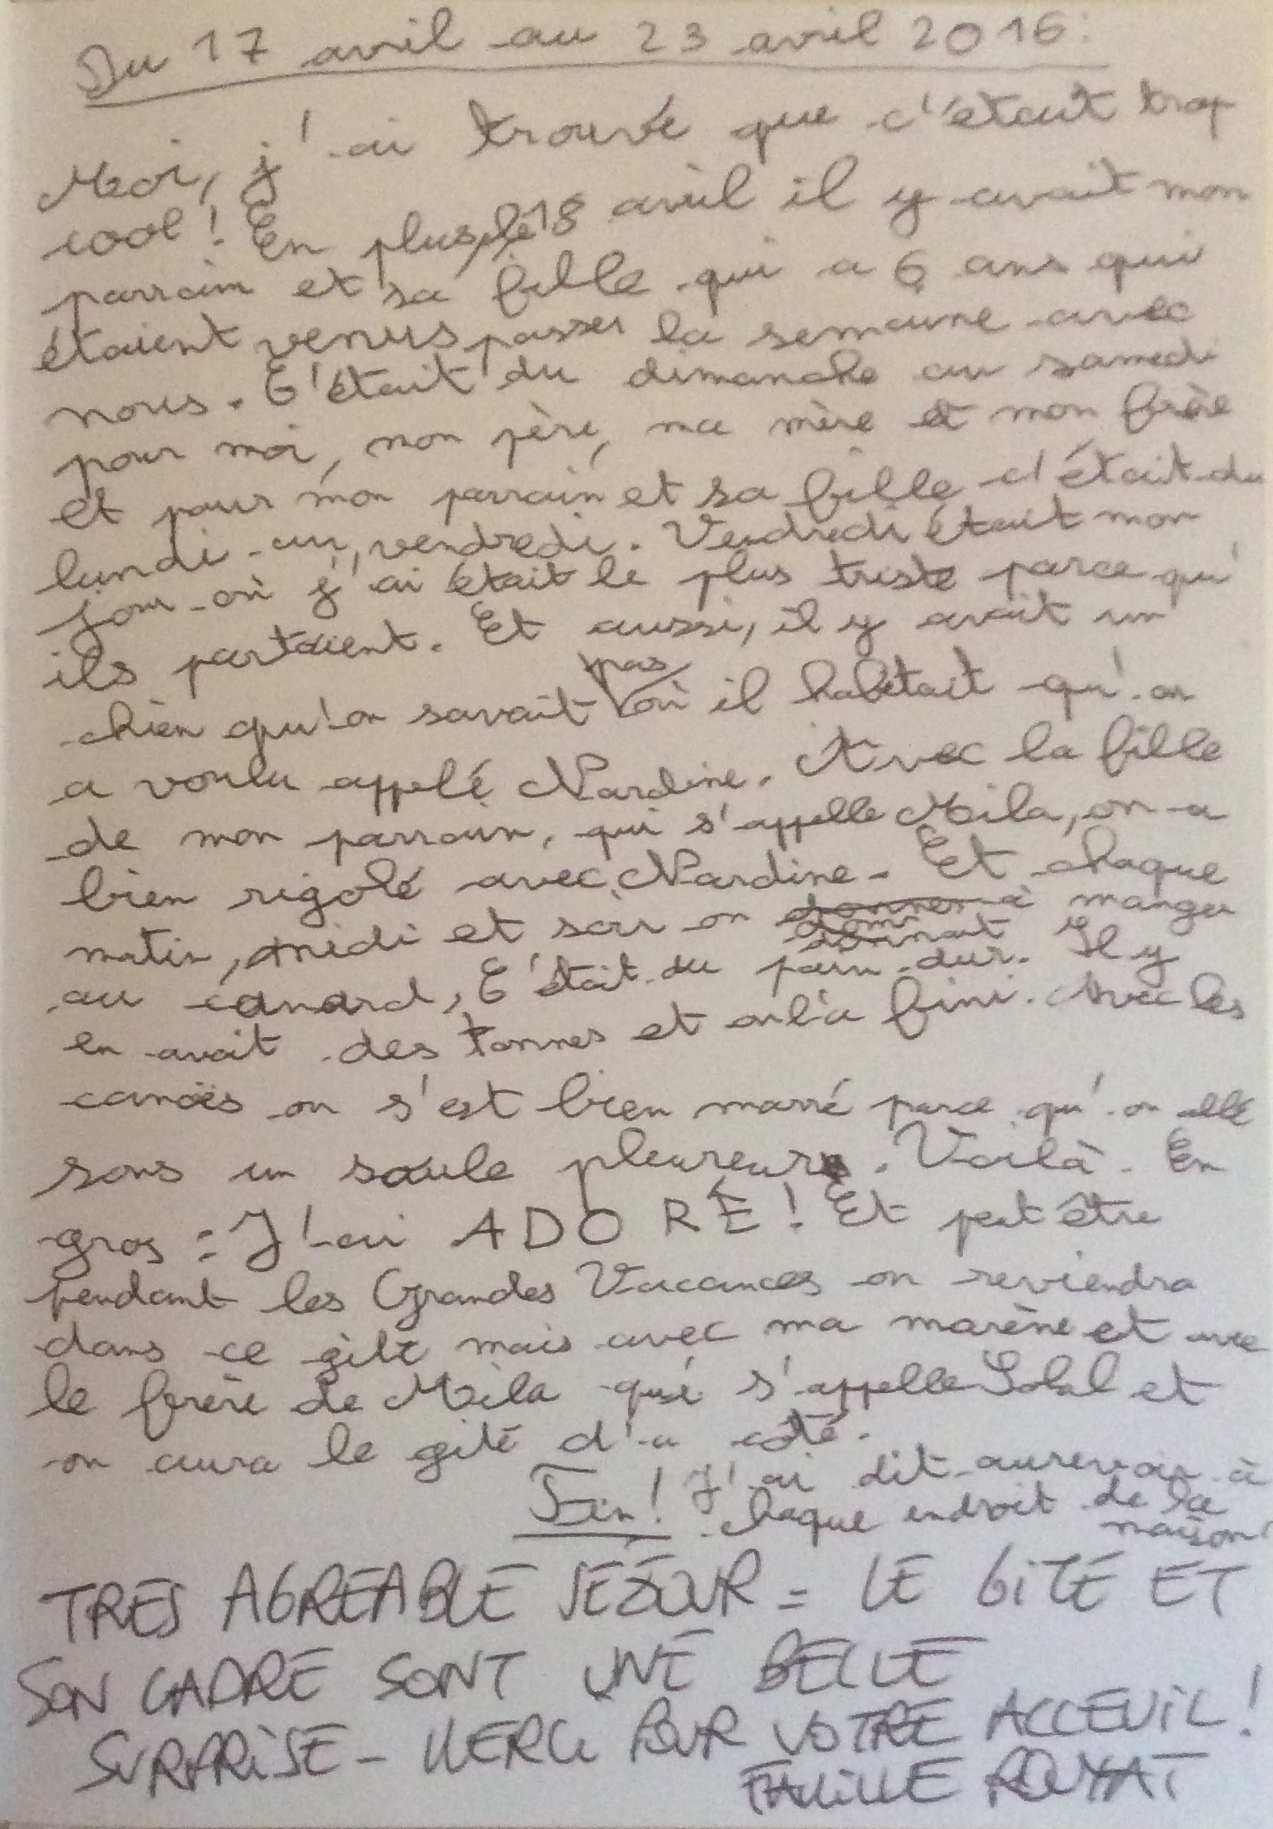 Du 17 avril au 23 avril 2016 :
Moi, j'ai trouvé que c'était trop
cool ! En plus, le 18 avril il y avait mon
parrain et sa fille qui a 6 ans qui
étaient venus passer la semaine avec
nous. C'était du dimanche au samedi
pour moi, mon père, ma mère et mon frère
et pour mon parrain et sa fille c'était du
lundi au vendredi. Vendredi était mon
jour où j'ai était le plus triste parce qu'
ils partaient. Et aussi, il y avait un
chien qu'on savait pas où il habitait qu'on
a voulu appelé Nardine. Avec la fille
de mon parrain, qui s'appelle Mila, on a
bien rigolé avec Nardine. Et chaque
matin, midi et soir on donnait à manger
au canard, C'était du pain dur. Il y
en avait des tonnes et on l'a fini. Avec les
canoës on s'est bien marré parce qu'on allé
sous un saule pleureur. Voilà. En
gros : J'ai ADORÉ ! Et peut être
pendant les Grandes Vacances on reviendra
dans ce gîte mais avec ma marène et avec
le frère de Mila qui s'appelle Solal et
on aura le gité d'a coté.
Fin ! J'ai dit aurevoir à
chaque endroit de la
maison
TRES AGREABLE SEJOUR = LE GITE ET
SON CADRE SONT UNE BELLE
SURPRISE - MERCI POUR VOTRE ACCEUIL !
FAMILLE